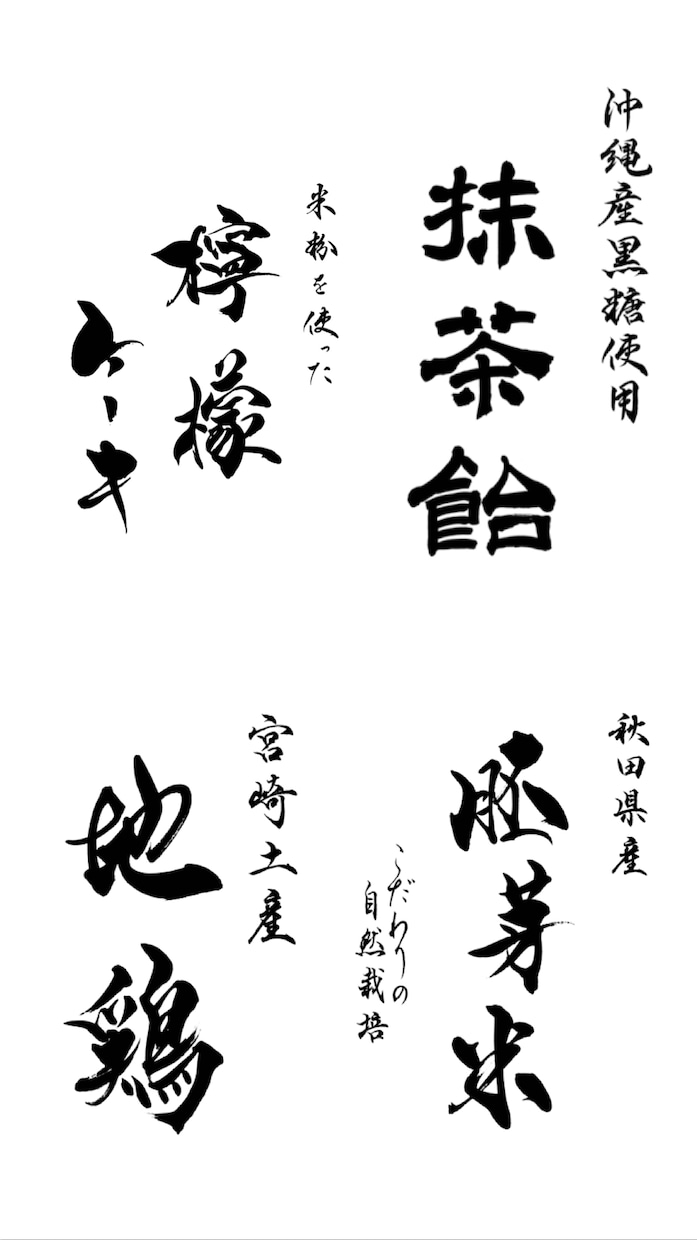 沖縄産黒糖使用
抹茶飴
米粉を使った
檸檬
ケーキ
秋田県産
胚芽米
こだわりの
自然栽培
宮崎土産
地鶏